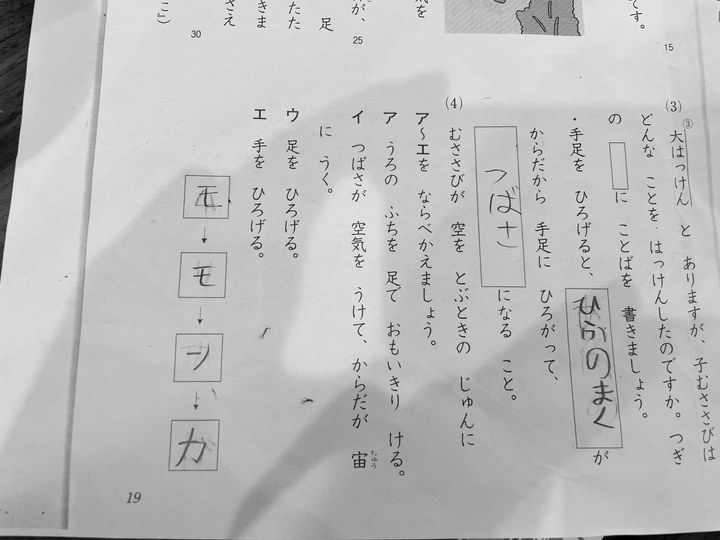 15
です。
気を
25
が、
足
30
たた
きま
さえ
こ』
(3)
③大はっけん と ありますが、子むささびは
どんな ことを はっけんしたのですか。つぎ
の □に ことばを 書きましょう。
・手足を ひろげると、ひらのまくが
からだから 手足に ひろがって、
つばさになる こと。
(4)
むささびが 空を とぶときの じゅんに
ア〜エを ならべかえましょう。
ア うろの ふちを 足で おもいきり ける。
イ つばさが 空気を うけて、からだが 宙
ちゅう
に うく。
ウ 足を ひろげる。
エ 手を ひろげる。
モ
↓
モ
↓
↓
カ
19